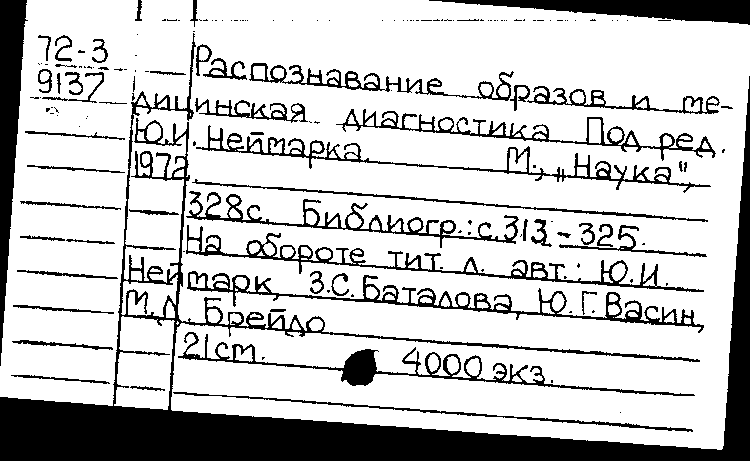 72-3
9137
Распознавание образов и ме-
дицинская диагностика Под ред.
Ю.И. Неймарка. М., „Наука",
1972.
328с. Библиогр.: с.313-325.
На обороте тит. л. авт.: Ю.И.
Неймарк, З.С. Баталова, Ю.Г. Васин,
М.Д. Брейдо
21см. 4000 экз.